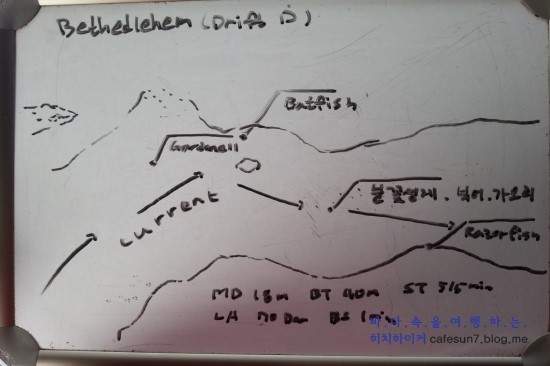 Bethedlehem (Drift D)
Batfish
Gardenell
Current
불꽃성게 . 넙어 . 가오리
Razorfish
MD 18m BT 40m ST 5/5min
LH 70bar BS 1min
바 다 속 을 여 행 하 는.
히치하이커 cafesun7.blog.me